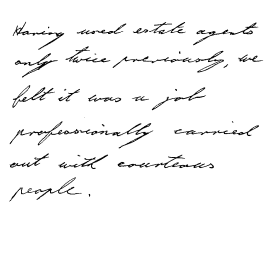 Having used estate agents
only twice previously, we
felt it was a job
professionally carried
out with courteous
people.